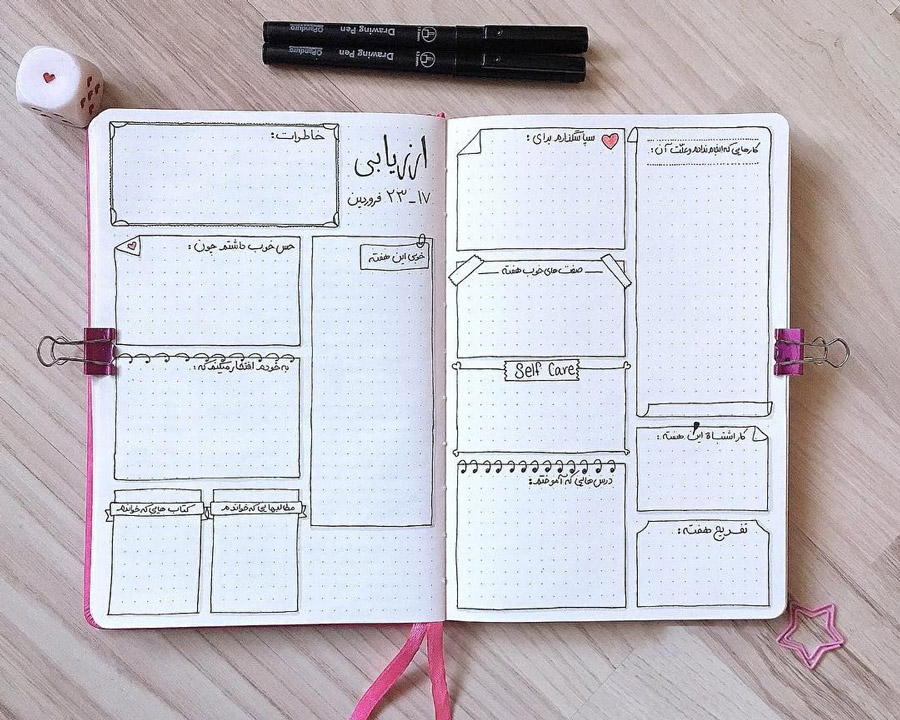 Drawing Pen
Drawing Pen
خاطرات:
ارزیابی
۱۷_۲۳ فروردین
حس خوب داشتم چون:
خوبی این هفته
به خودم افتخار میکنم که:
کتاب هایی که خواندم
مطالبهایی که خواندم
سپاسگذارم برای:
کارهایی که انجام ندادم و علت آن:
صفت های خوب هفته
Self Care
کار اشتباه این هفته:
درس هایی که آموختم:
تفریح هفته: